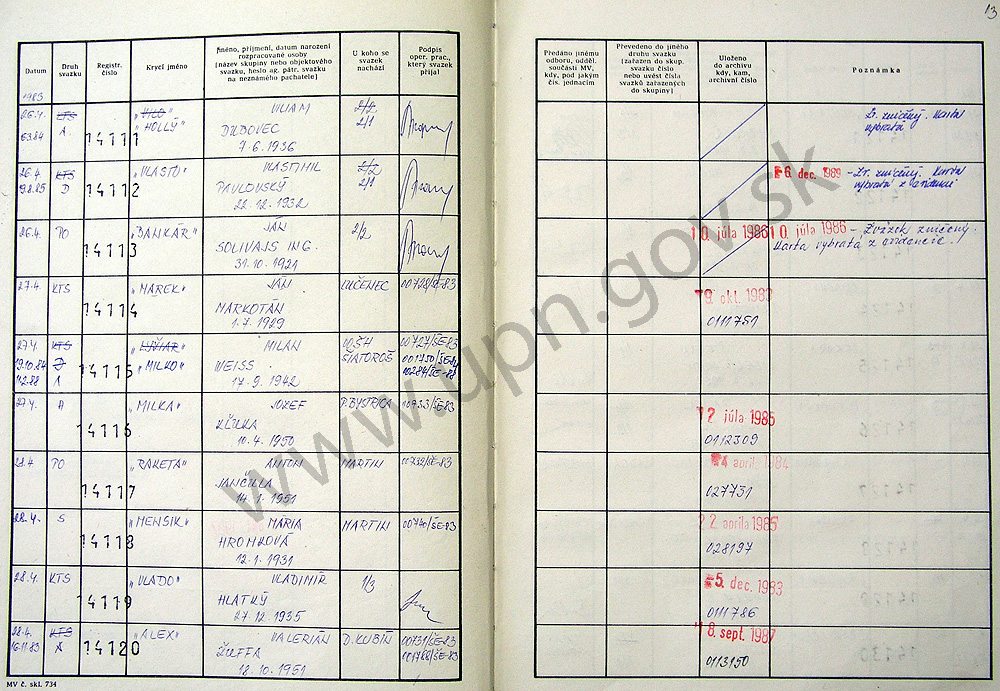 13
Datum
Druh svazku
Registr. číslo
Krycí jméno
Jméno, příjmení, datum narození
rozpracované osoby
(název skupiny nebo objektového
svazku, heslo ag. pátr. svazku
na neznámého pachatele)
U koho se
svazek
nachází
Podpis
oper. prac.,
který svazek
přijal
Předáno jinému
odboru, odděl.
součásti MV,
kdy, pod jakým
čís. jednacím
Převedeno do jiného
druhu svazku
(zařazen do skup.
svazku číslo
nebo uvést čísla
svazků zařazených
do skupiny)
Uloženo
do archivu
kdy, kam,
archivní číslo
Poznámka
1983
26.4. KTS "VILO" VILIAM 2/2
6.3.84 A. 14111 "HOLLÝ" DUDOVEC 2/1
7.6.1936
Zv. zničený. Karta
vybratá
26.4. KTS "VLASTO" VLASTIMIL 2/2
9.8.85 D 14112 PAVLOVSKÝ 2/1
22.12.1932
6. dec. 1989 - Zv. zničený. Karta
vybratá z evidencií
26.4. PO "BANKÁR" JÁN 2/2
14113 SOLIVAJS ING.
31.10.1921
10. júla 1986 10. júla 1986 - Zväzek zničený.
Karta vybratá z evidencie.
27.4. KTS "MAREK" JÁN LUČENEC 00728/ŠE-83
14114 MARKOTÁN
1.7.1929
9. okt. 1983
0111751
27.4. KTS MILAN 00727/ŠE-83
19.10.84 14115 "MILKO" WEISS ŠIATOROŠ 001750/ŠE-84
A 17.9.1942 00284/ŠE-88
27.4. A "MILKA" JOZEF P. BYSTRICA 00733/ŠE-83
14116
10.4.1950
2. júla 1985
0112309
28.4 PO "RAKETA" ANTON MARTIN 00732/ŠE-83
14117 JANČILLA
14.1.1951
4. apríla 1984
027731
28.4. S "MENSIK" MÁRIA MARTIN 00740/ŠE-83
14118 HROMKOVÁ
12.1.1931
22. apríla 1985
028197
28.4. KTS "VLADO" VLADIMÍR 1/3
14119 HLATKÝ
27.12.1935
5. dec. 1983
0111786
28.4. KTS "ALEX" VALERIÁN D. KUBÍN 00731/ŠE-83
16.11.83 A 14120 ŽUFFA 001788/ŠE-83
18.10.1951
18. sept. 1987
0113150
MV č. skl. 734
www.upn.gov.sk